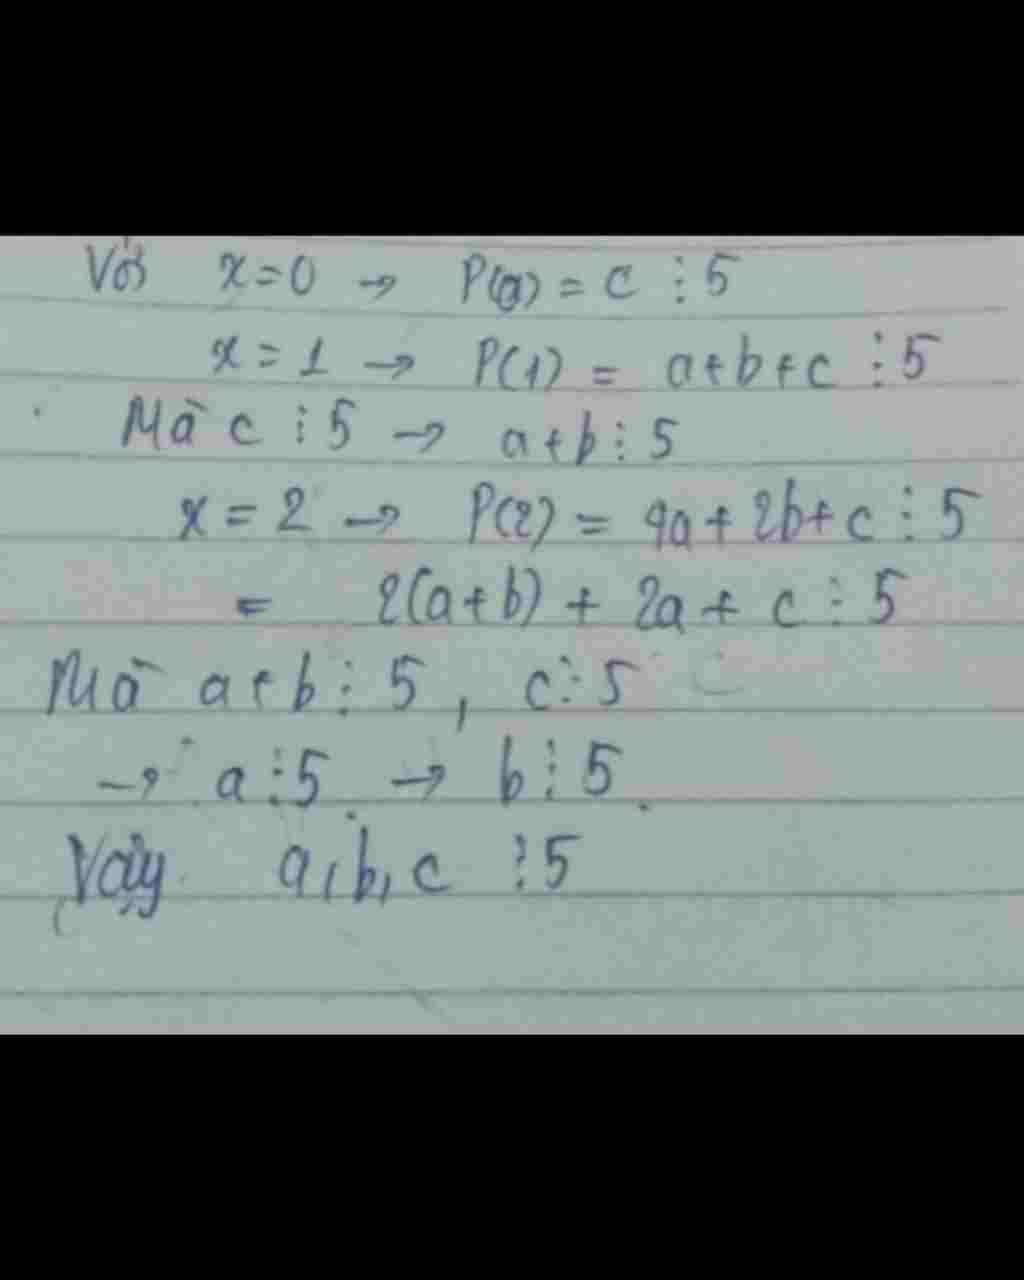 Với x=0 → P(0) = c ⋮ 5
x = 1 → P(1) = a+b+c ⋮ 5
Mà c ⋮ 5 → a+b ⋮ 5
x = 2 → P(2) = 4a + 2b + c ⋮ 5
= 2(a+b) + 2a + c ⋮ 5
Mà a+b ⋮ 5, c ⋮ 5
→ a ⋮ 5 → b ⋮ 5
Vậy a, b, c ⋮ 5